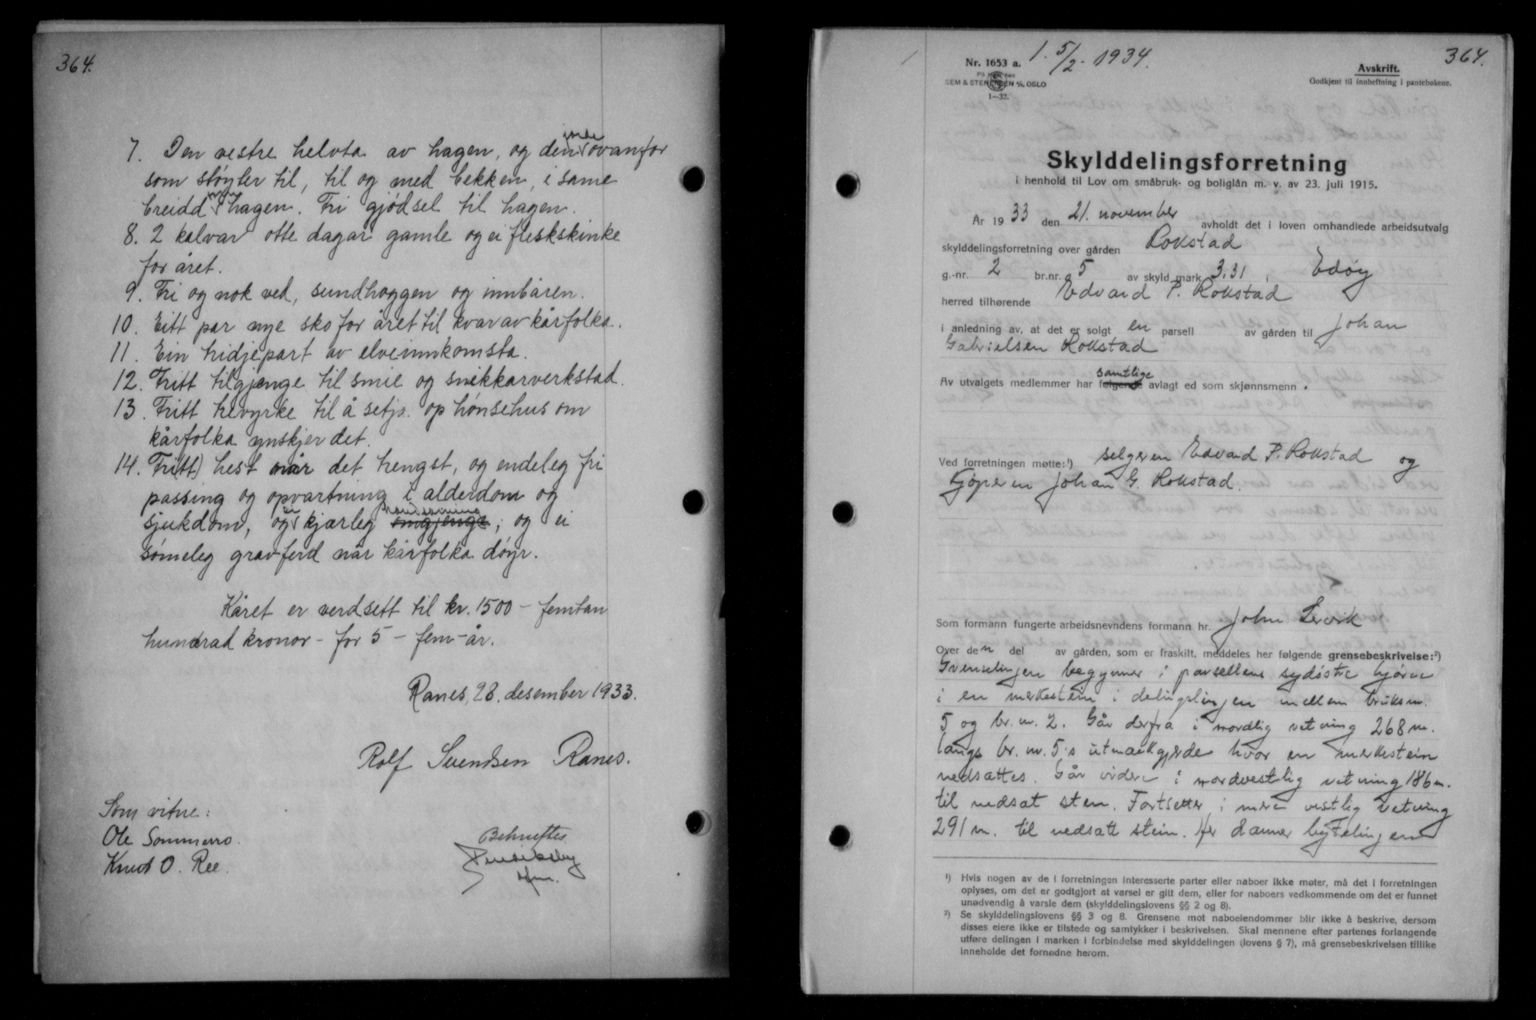 364.
7. Den vestre helvta av hagen, og den jorde ovanfor
som støyter til, til og med bekken, i same
breidd som hagen. Fri gjødsel til hagen.
8. 2 kalvar otte dagar gamle og ei fleskskinke
for året.
9. Fri og nok ved, sundhoggen og innbåren.
10. Eitt par nye sko for året til kvar av kårfolka.
11. Ein tridjepart av elveinnkomsta.
12. Fritt tilgjenge til smie og snikkarverkstad.
13. Fritt trevyrke til å setja op hønsehus om
kårfolka ynskjer det.
14. Fri(tt) hest når det trengst, og endeleg fri
passing og opvartning i alderdom og
sjukdom, og ei kjærleg omgjenge, og ei
sømeleg gravferd når kårfolka døyr.
Kåret er verdsett til kr. 1500 - femtan
hundrad kronor - for 5 - fem - år.
Ranes, 28. desember 1933.
Rolf Svendsen Ranes.
Som vitne:
Ole Sommerro.
Knut O. Ree.
Bekreftes
1. 5/2 - 1934.
364.
Nr. 1653 a.
SEM & STENERSEN A/S, OSLO
1—32.
Avskrift.
Godkjent til innheftning i pantebøkene.
Skylddelingsforretning
i henhold til Lov om småbruk- og boliglån m. v. av 23. juli 1915.
År 1933 den 21. november avholdt det i loven omhandlede arbeidsutvalg
skylddelingsforretning over gården Rokstad
g.-nr. 2 br.nr. 5 av skyld mark 3,31 i Edøy
herred tilhørende Edvard P. Rokstad
i anledning av, at det er solgt en parsell av gården til Johan
Gabrielsen Rokstad
Av utvalgets medlemmer har følgende samtlige avlagt ed som skjønnsmenn.
Ved forretningen møtte:¹) selgeren Edvard P. Rokstad og
kjøperen Johan G. Rokstad.
Som formann fungerte arbeidsnevndens formann hr. John Lervik
Over den del av gården, som er fraskilt, meddeles her følgende grensebeskrivelse:²)
Grenselinjen begynner i parsellens sydøstre hjørne
i en merkestein i delingslinjen mellem bruksnr.
5 og br. nr. 2. Går derfra i nordlig retning 268 m.
langs br. nr. 5's utmarkgjerde hvor en merkestein
nedsattes. Går videre i nordvestlig retning 186 m.
til nedsat sten. Fortsetter i mere vestlig retning
291 m. til nedsatt stein. Her danner
¹) Hvis nogen av de i forretningen interesserte parter eller naboer ikke møter, må det i forretningen
oplyses, om det er godtgjort at varsel er gitt dem, eller for naboers vedkommende om det er funnet
unødvendig å varsle dem (skylddelingslovens §§ 2 og 8).
²) Se skylddelingslovens §§ 3 og 8. Grensene mot naboeiendommer blir ikke å beskrive, dersom
disses eiere ikke er tilstede og samtykker i beskrivelsen. Skal mennene efter partenes forlangende
utføre delingen i marken i forbindelse med skylddelingen (lovens § 7), må grensebeskrivelsen tillike
inneholde det fornødne herom.